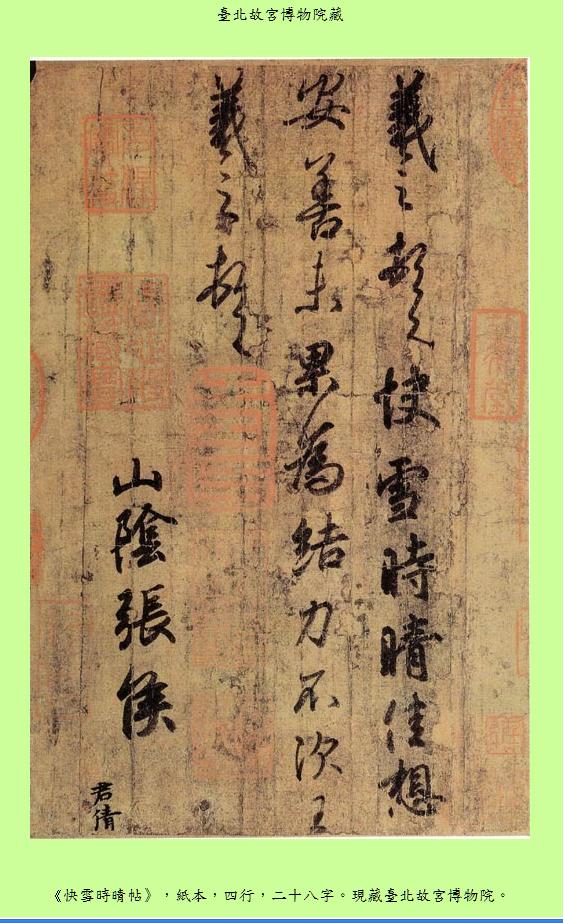 臺北故宮博物院藏
羲之頓首快雪時晴佳想
安善未果為結力不次王
羲之頓首
山陰張侯
君倩
《快雪時晴帖》，紙本，四行，二十八字。現藏臺北故宮博物院。